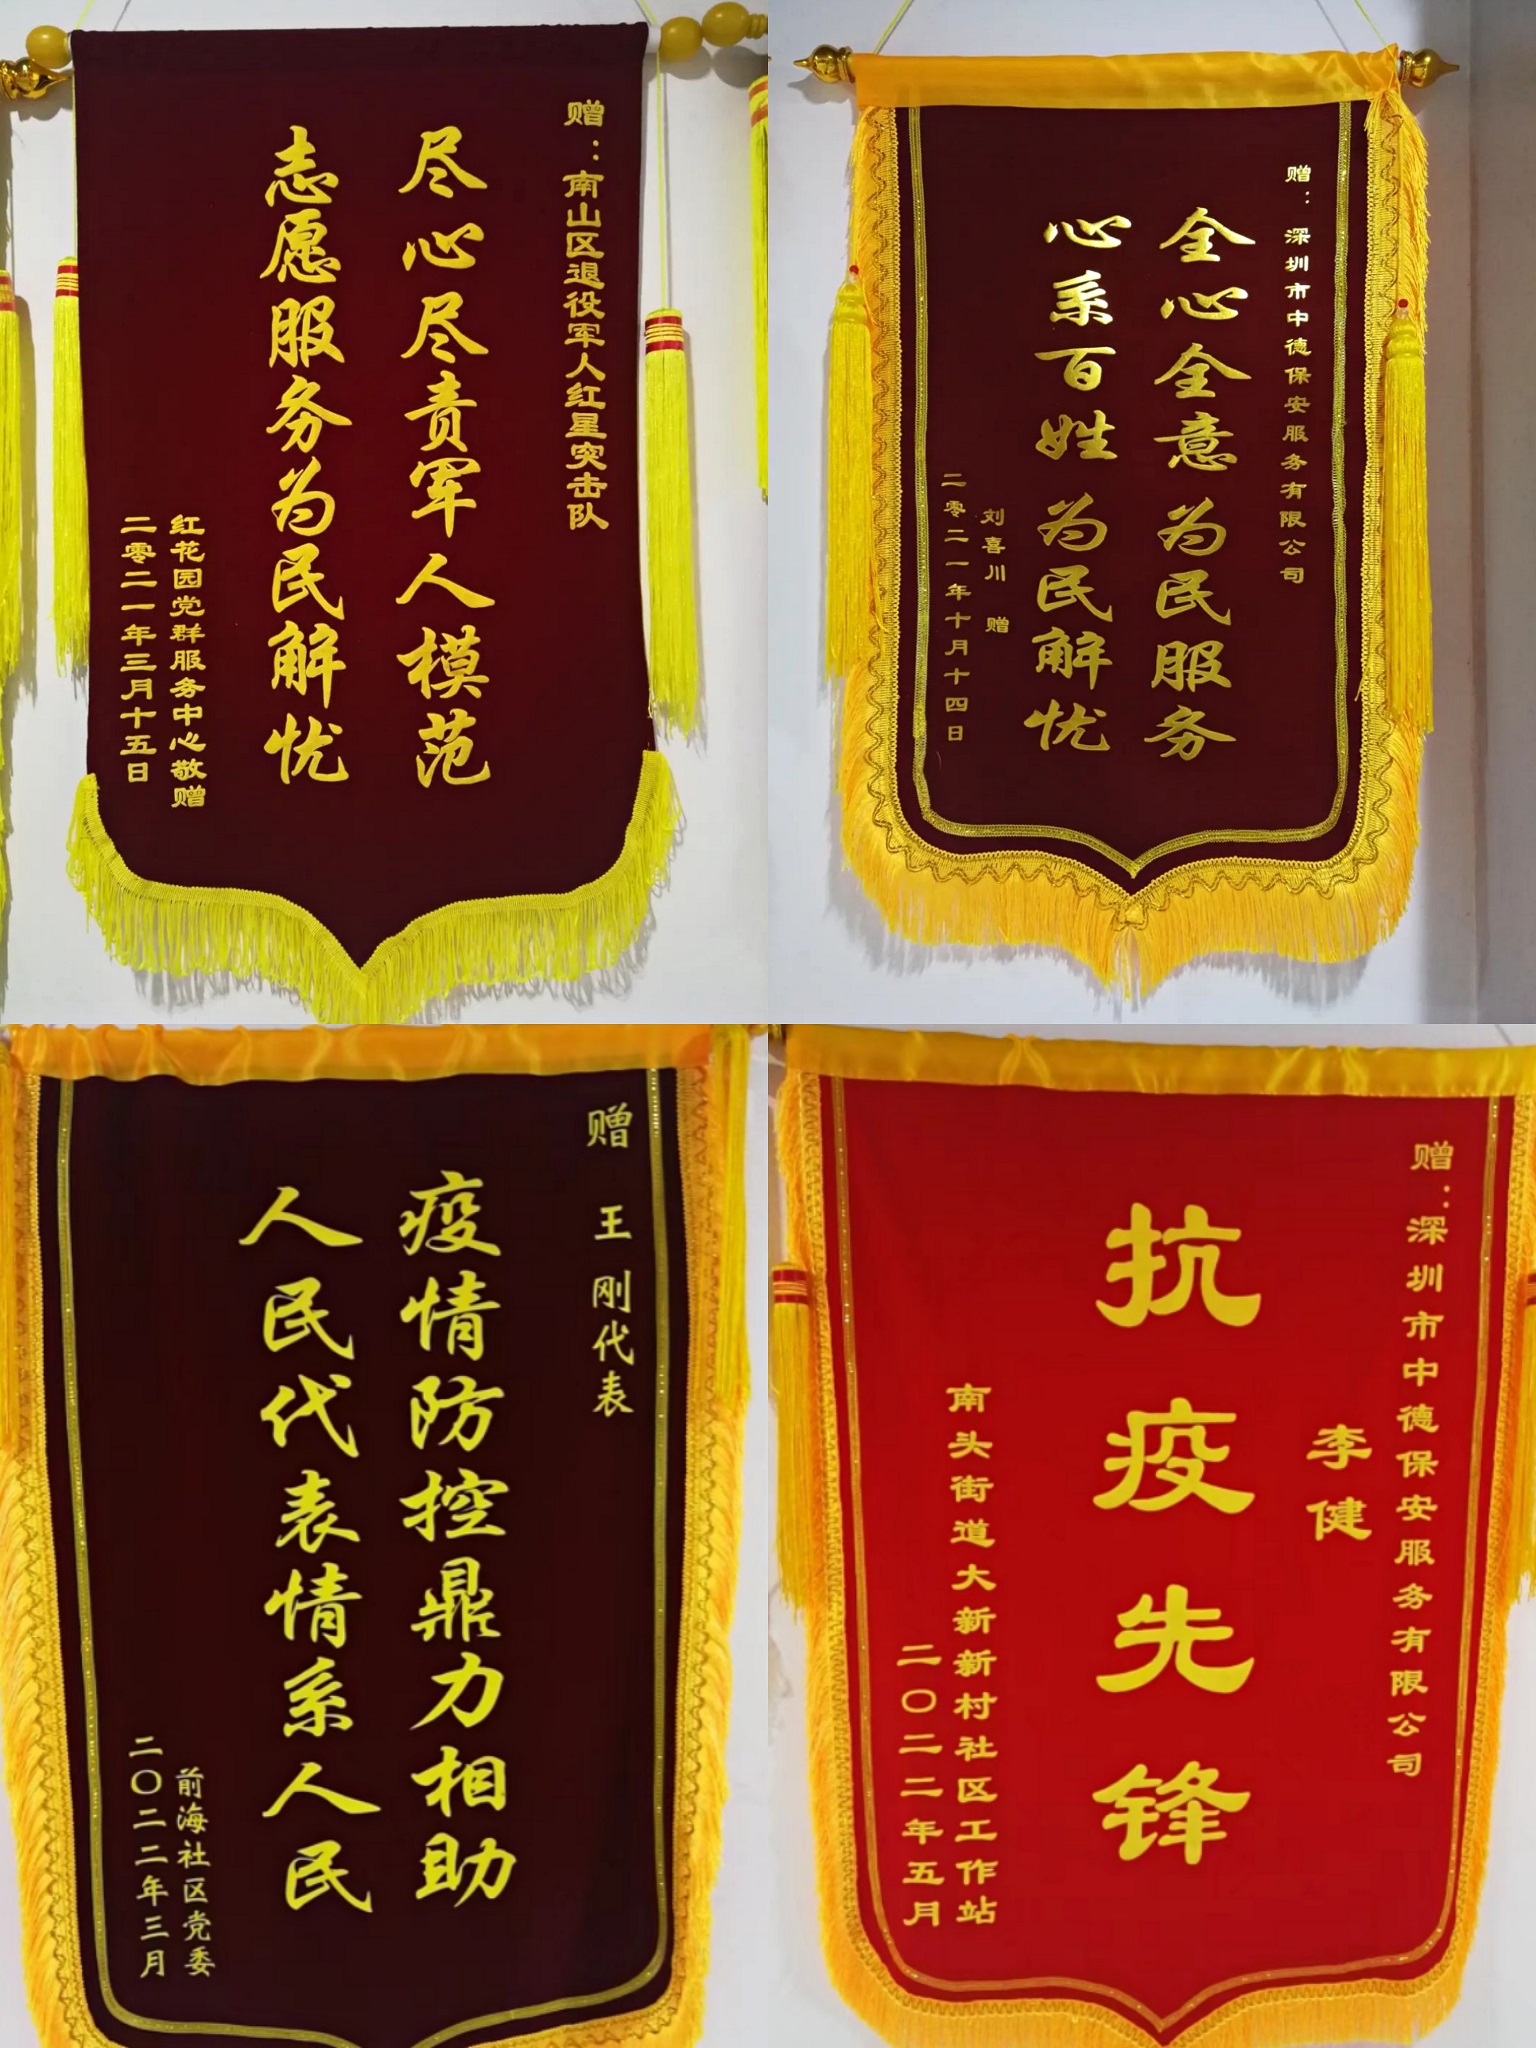 赠：南山区退役军人红星突击队
尽心尽责军人模范
志愿服务为民解忧
红花园党群服务中心敬赠
二零二一年三月十五日
赠：深圳市中德保安服务有限公司
全心全意为民服务
心系百姓为民解忧
刘喜川 赠
二零二一年十月十四日
赠 王刚代表
疫情防控鼎力相助
人民代表情系人民
前海社区党委
二〇二二年三月
赠：深圳市中德保安服务有限公司
李健
抗疫先锋
南头街道大新新村社区工作站
二〇二二年五月